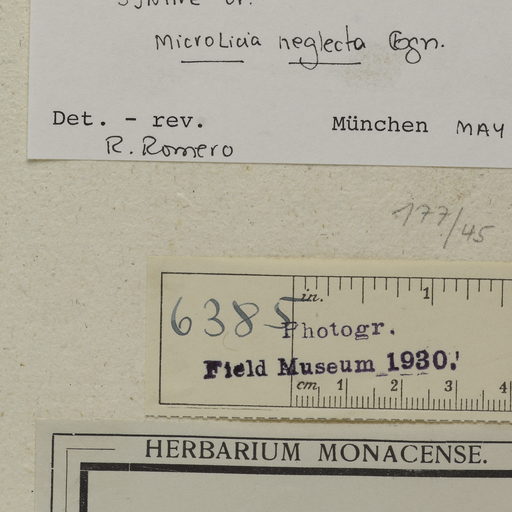 Microlicia neglecta Cogn.
Det. - rev. München MAY
R. Romero
177/45
6385
in. 1
Photogr.
Field Museum 1930.
cm 1 2 3 4
HERBARIUM MONACENSE.